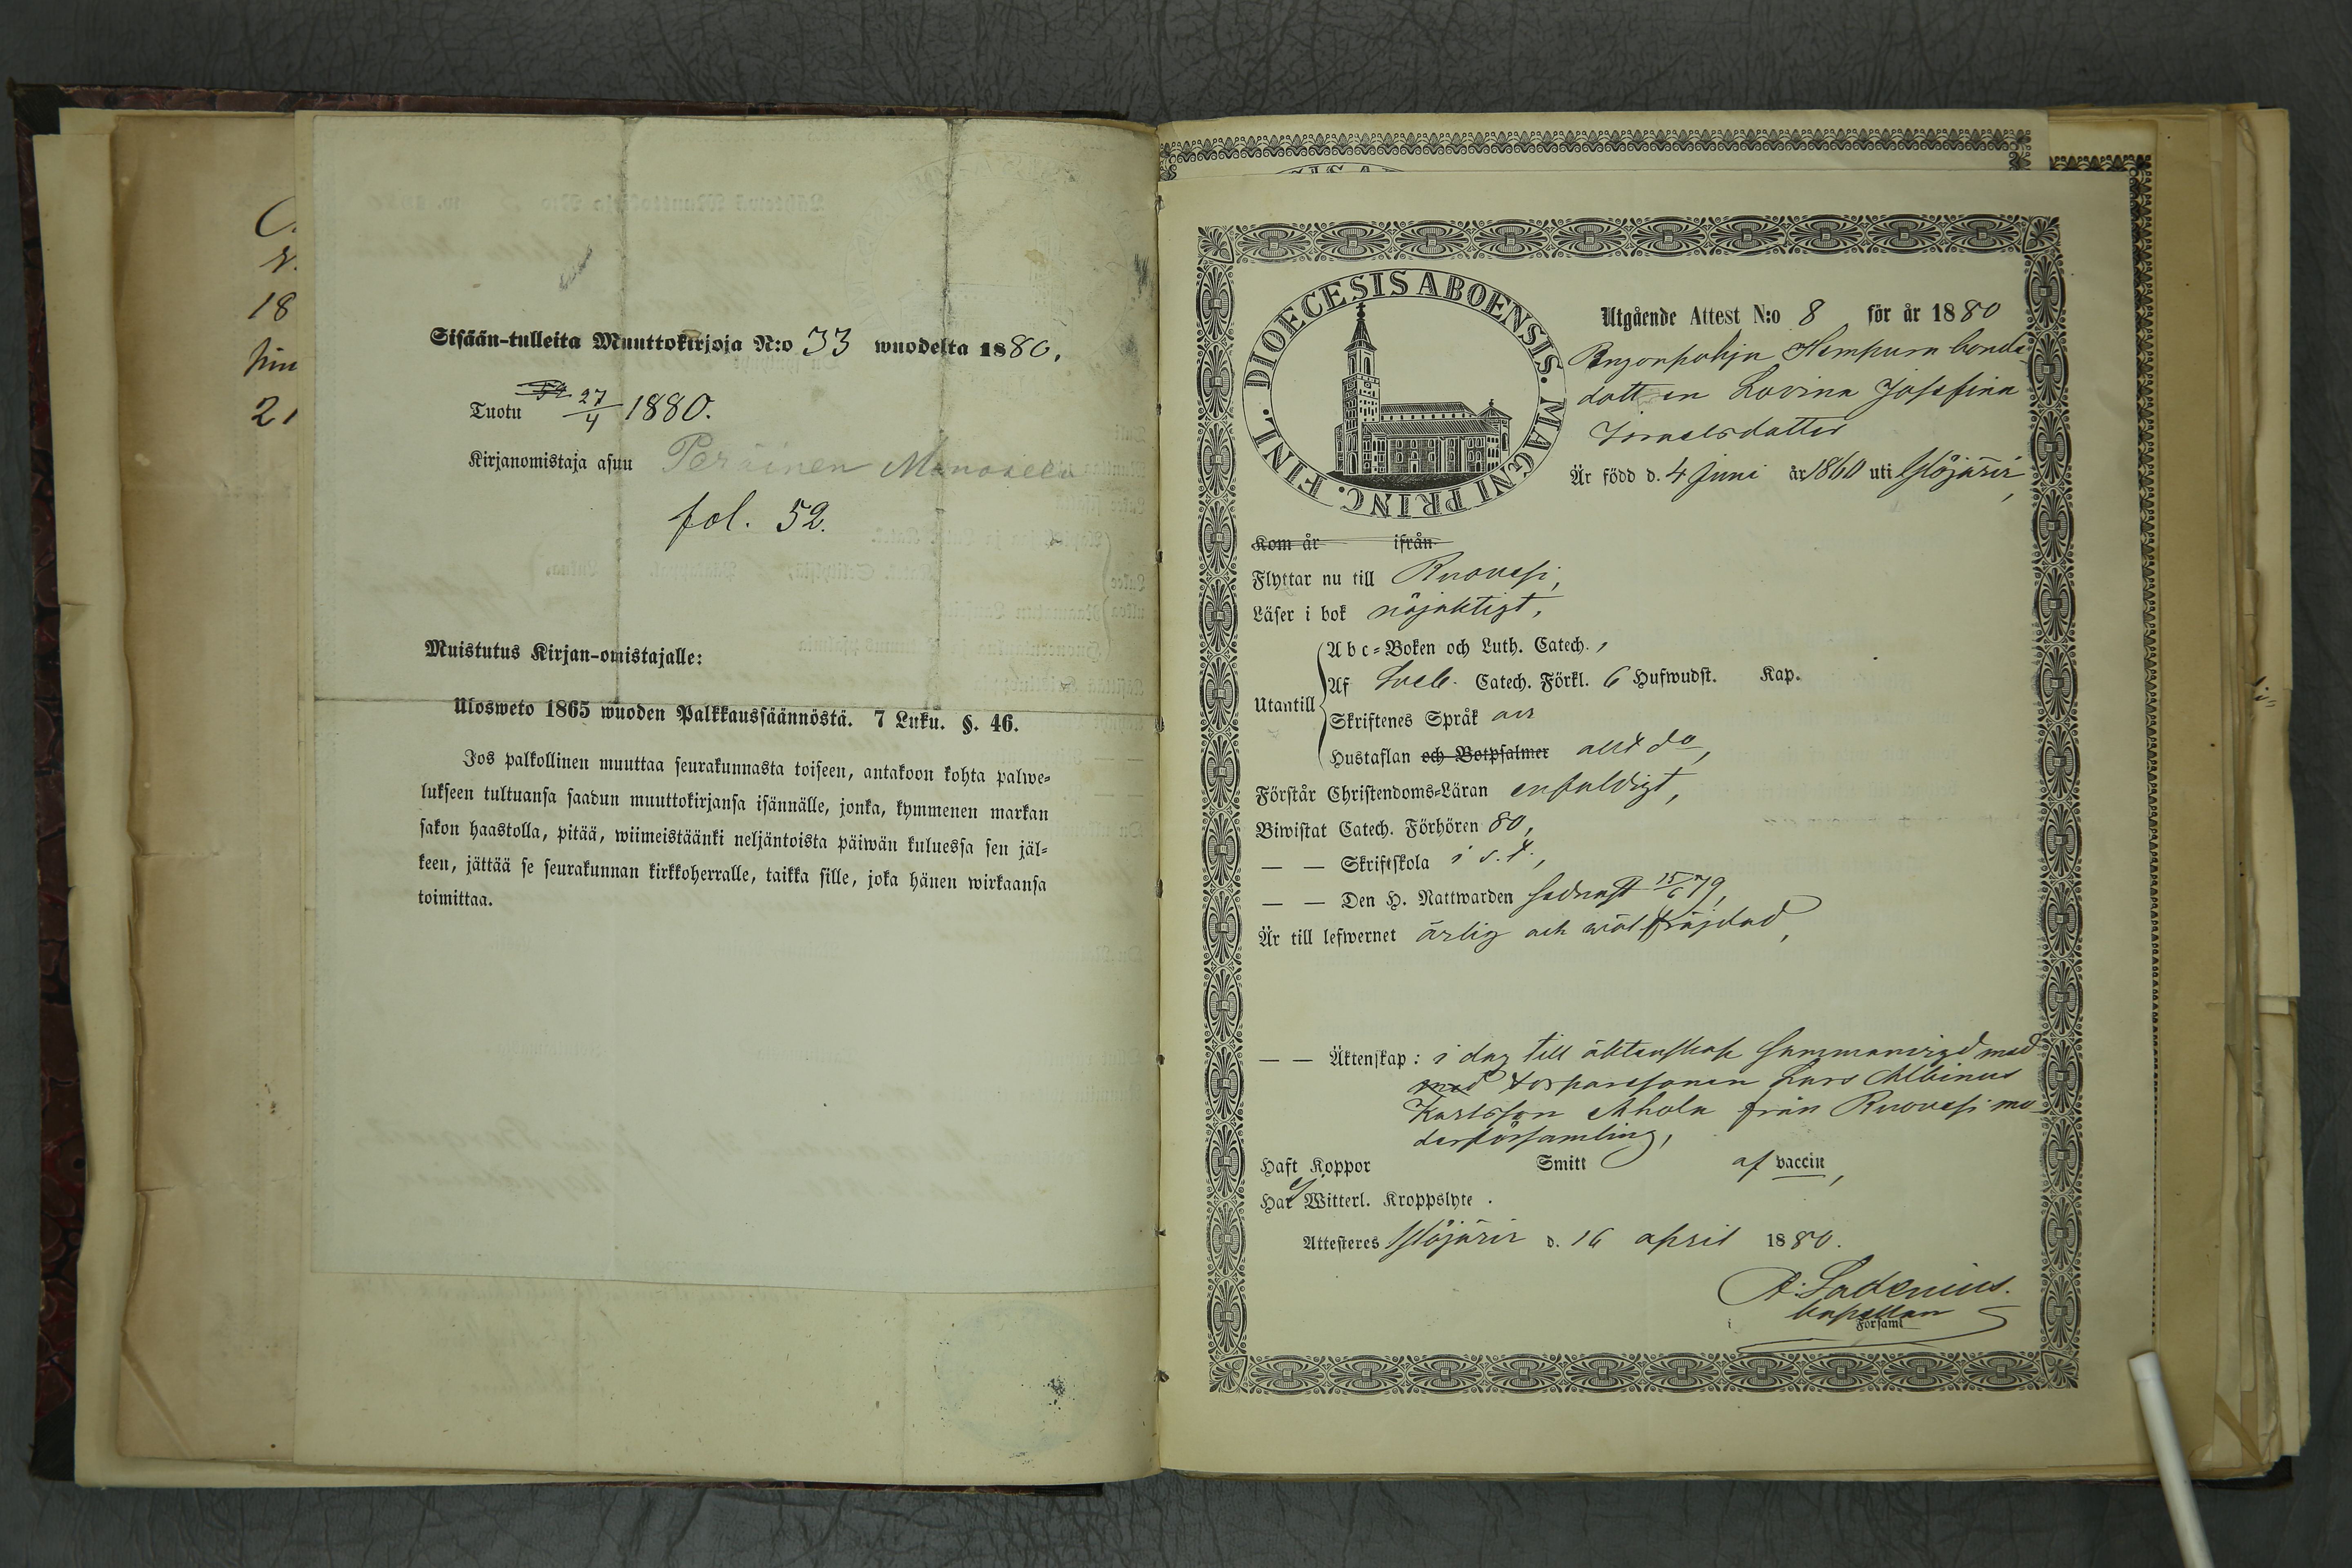 C.
18
21
Sisään-tulleita Muuttokirjoja N:o 33 wuodelta 1880.
Tuotu 27/4 1880.
Kirjanomistaja asuu Peräinen
fol. 52.
Muistutus Kirjan-omistajalle:
Ulosweto 1865 wuoden Palkkaussäännöstä. 7 Luku. §. 46.
Jos palkollinen muuttaa seurakunnasta toiseen, antakoon kohta palwe-
lukseen tultuansa saadun muuttokirjansa isännälle, jonka, kymmenen markan
sakon haastolla, pitää, wiimeistäänki neljäntoista päiwän kuluessa sen jäl-
keen, jättää se seurakunnan kirkkoherralle, taikka sille, joka hänen wirkaansa
toimittaa.
DIOECESIS ABOENSIS. MAGNI PRINC. FINL.
Utgående Attest N:o 8 för år 1880
bonde
dottren Lovina Josefina
Israelsdotter
Är född d. 4 Juni år 1860 uti
Kom år ifrån
Flyttar nu till Ruovesi,
Läser i bok nöjaktigt,
Utantill
Abc-Boken och Luth. Catech. ,
Af Sveb. Catech. Förkl. 6 Hufwudst. Kap.
Skriftenes Språk
Hustaflan och Botpsalmer allt do,
Förstår Christendoms-Läran enfaldigt,
Biwistat Catech. Förhören 80,
— — Skriftskola i s. t.,
— — Den H. Nattwarden sednast 15/6 79,
Är till lefwernet ärlig och wälfräjdad,
— — Äktenskap: i dag till äktenskap sammanvigd med
med torparesonen Lars Albinus
Karlsson Ahola från Ruovesi mo-
derförsamling,
Haft Koppor Smitt af vaccin,
Har ej Witterl. Kroppslyte .
Attesteres d. 16 april 1880.
Capellan
i Församl